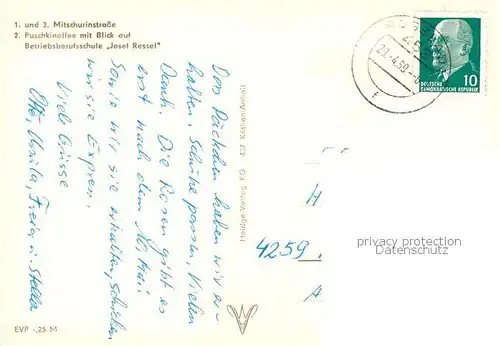 1. und 3. Mitschurinstraße
2. Puschkinallee mit Blick auf
Betriebsberufsschule „Josef Ressel"
Das Päckchen haben wir er-
halten, Schuhe passen, Vielen
Dank. Die Rosen gibt es
erst nach dem 1. Mai
Sowie wir sie erhalten, schicken
wir sie Express.
Viele Grüsse
Otto, Ursula, u. Stella
EVP -,25 M
Heldge-Verlag KG 437 Köthen/Anhalt
DEUTSCHE
DEMOKRATISCHE REPUBLIK
10
4259
H
A
privacy protection
Datenschutz